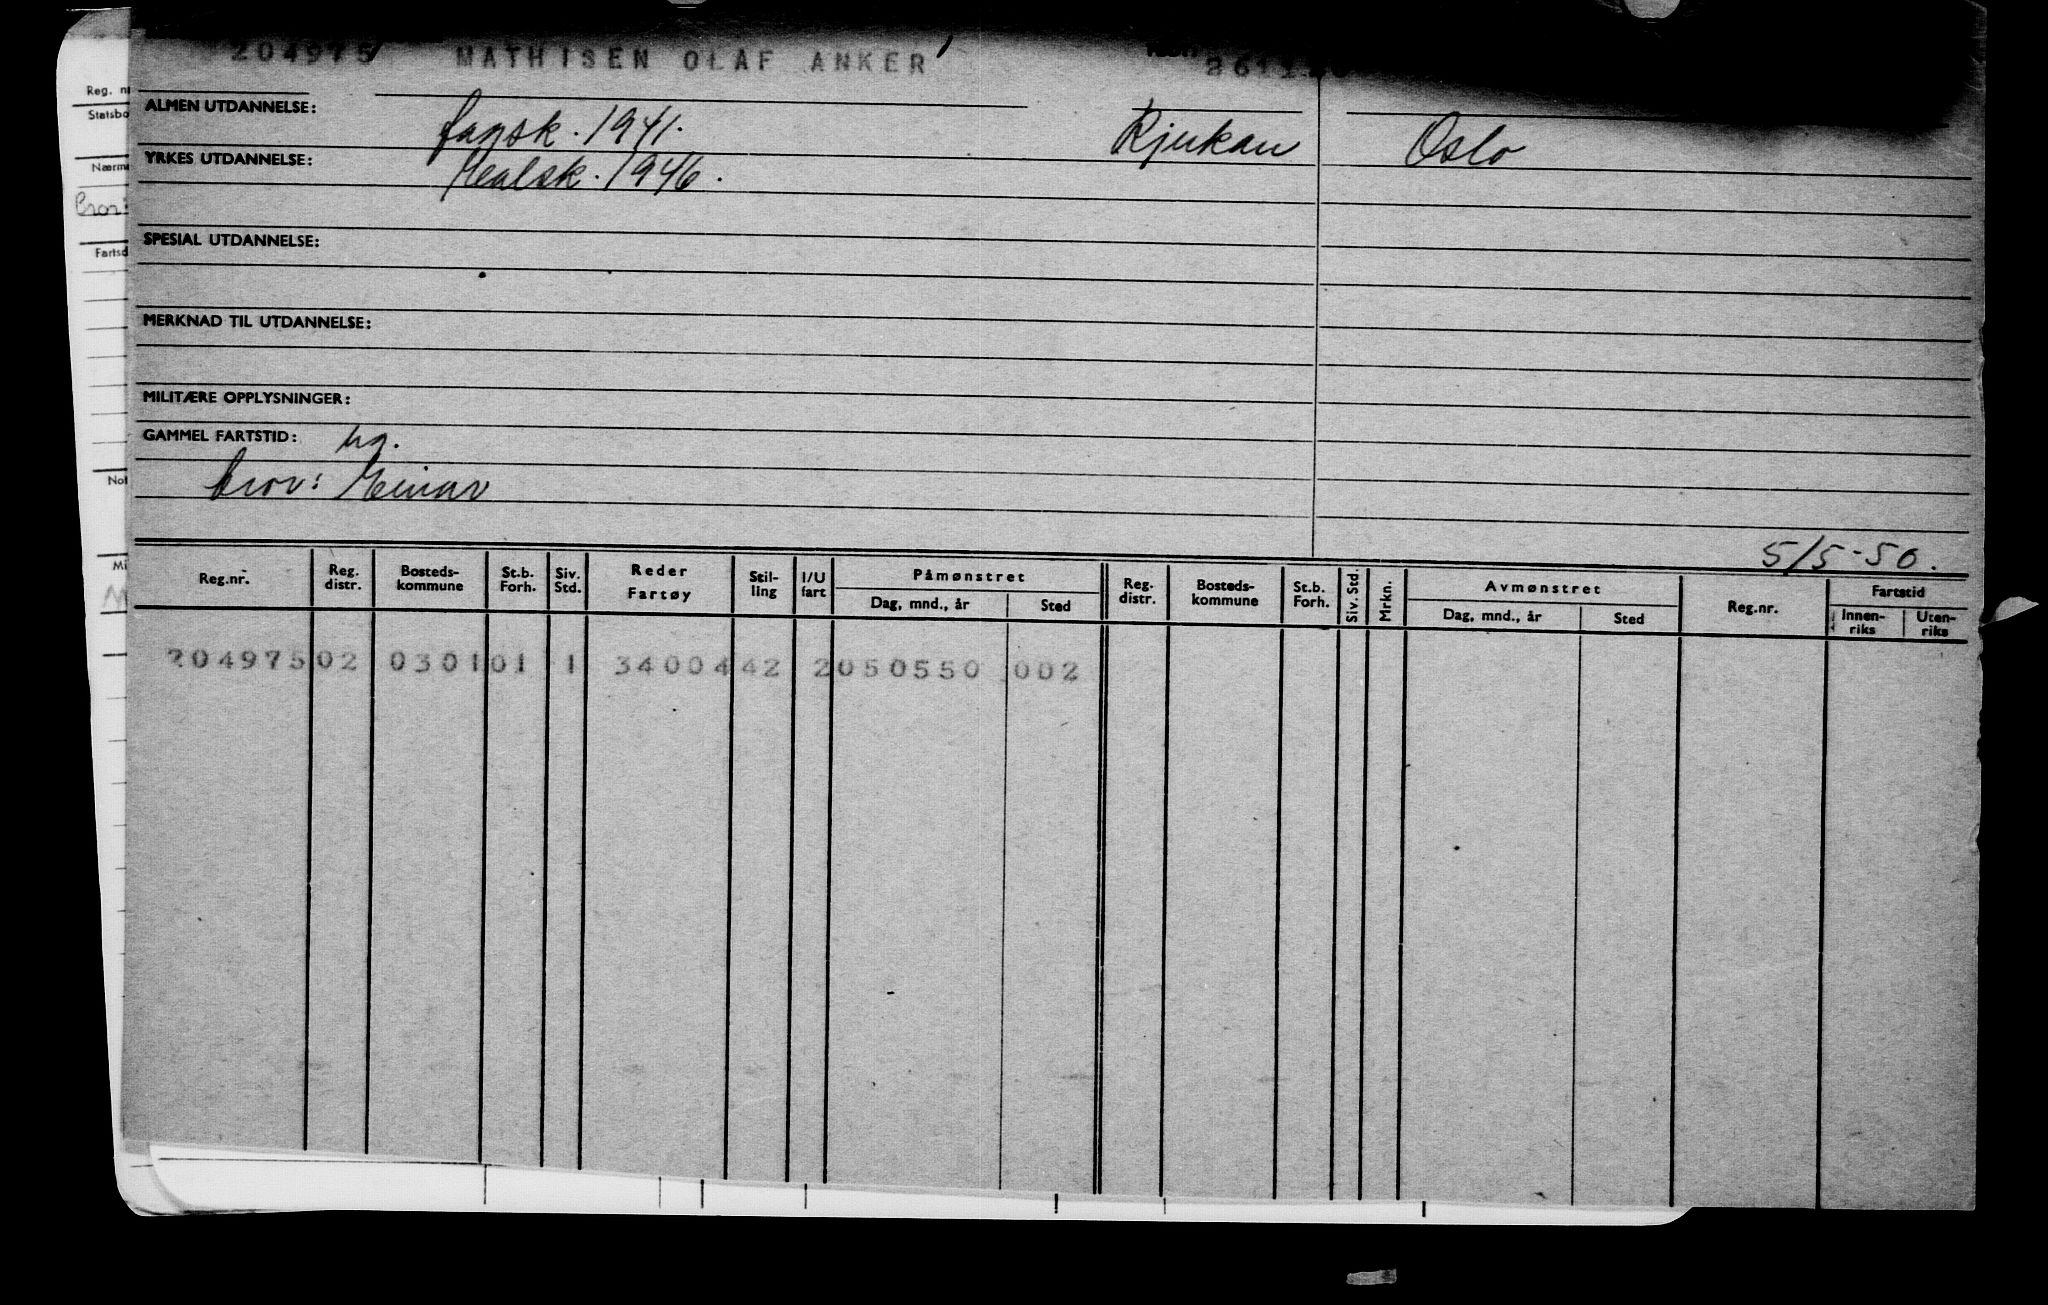 204975 MATHISEN OLAF ANKER
ALMEN UTDANNELSE: 1941. Rjukan Oslo
YRKES UTDANNELSE: Realsk. 1946.
SPESIAL UTDANNELSE:
MERKNAD TIL UTDANNELSE:
MILITÆRE OPPLYSNINGER:
GAMMEL FARTSTID: ug.
bror: Einar
5/5-50.
Reg.nr. Reg. distr. Bosteds-kommune St.b. Forh. Siv. Std. Reder Fartøy Stil-ling I/U fart Påmønstret Dag, mnd., år Sted Reg. distr. Bosteds-kommune St.b. Forh. Siv. Std. Mrkn. Avmønstret Dag, mnd., år Sted Reg.nr. Fartstid Innen-riks Uten-riks
204975 02 0301 01 1 34004 42 2 050550 002
Reg. n
Statsbo
Nærm
Bror:
Fartsd
Not
Mi
M